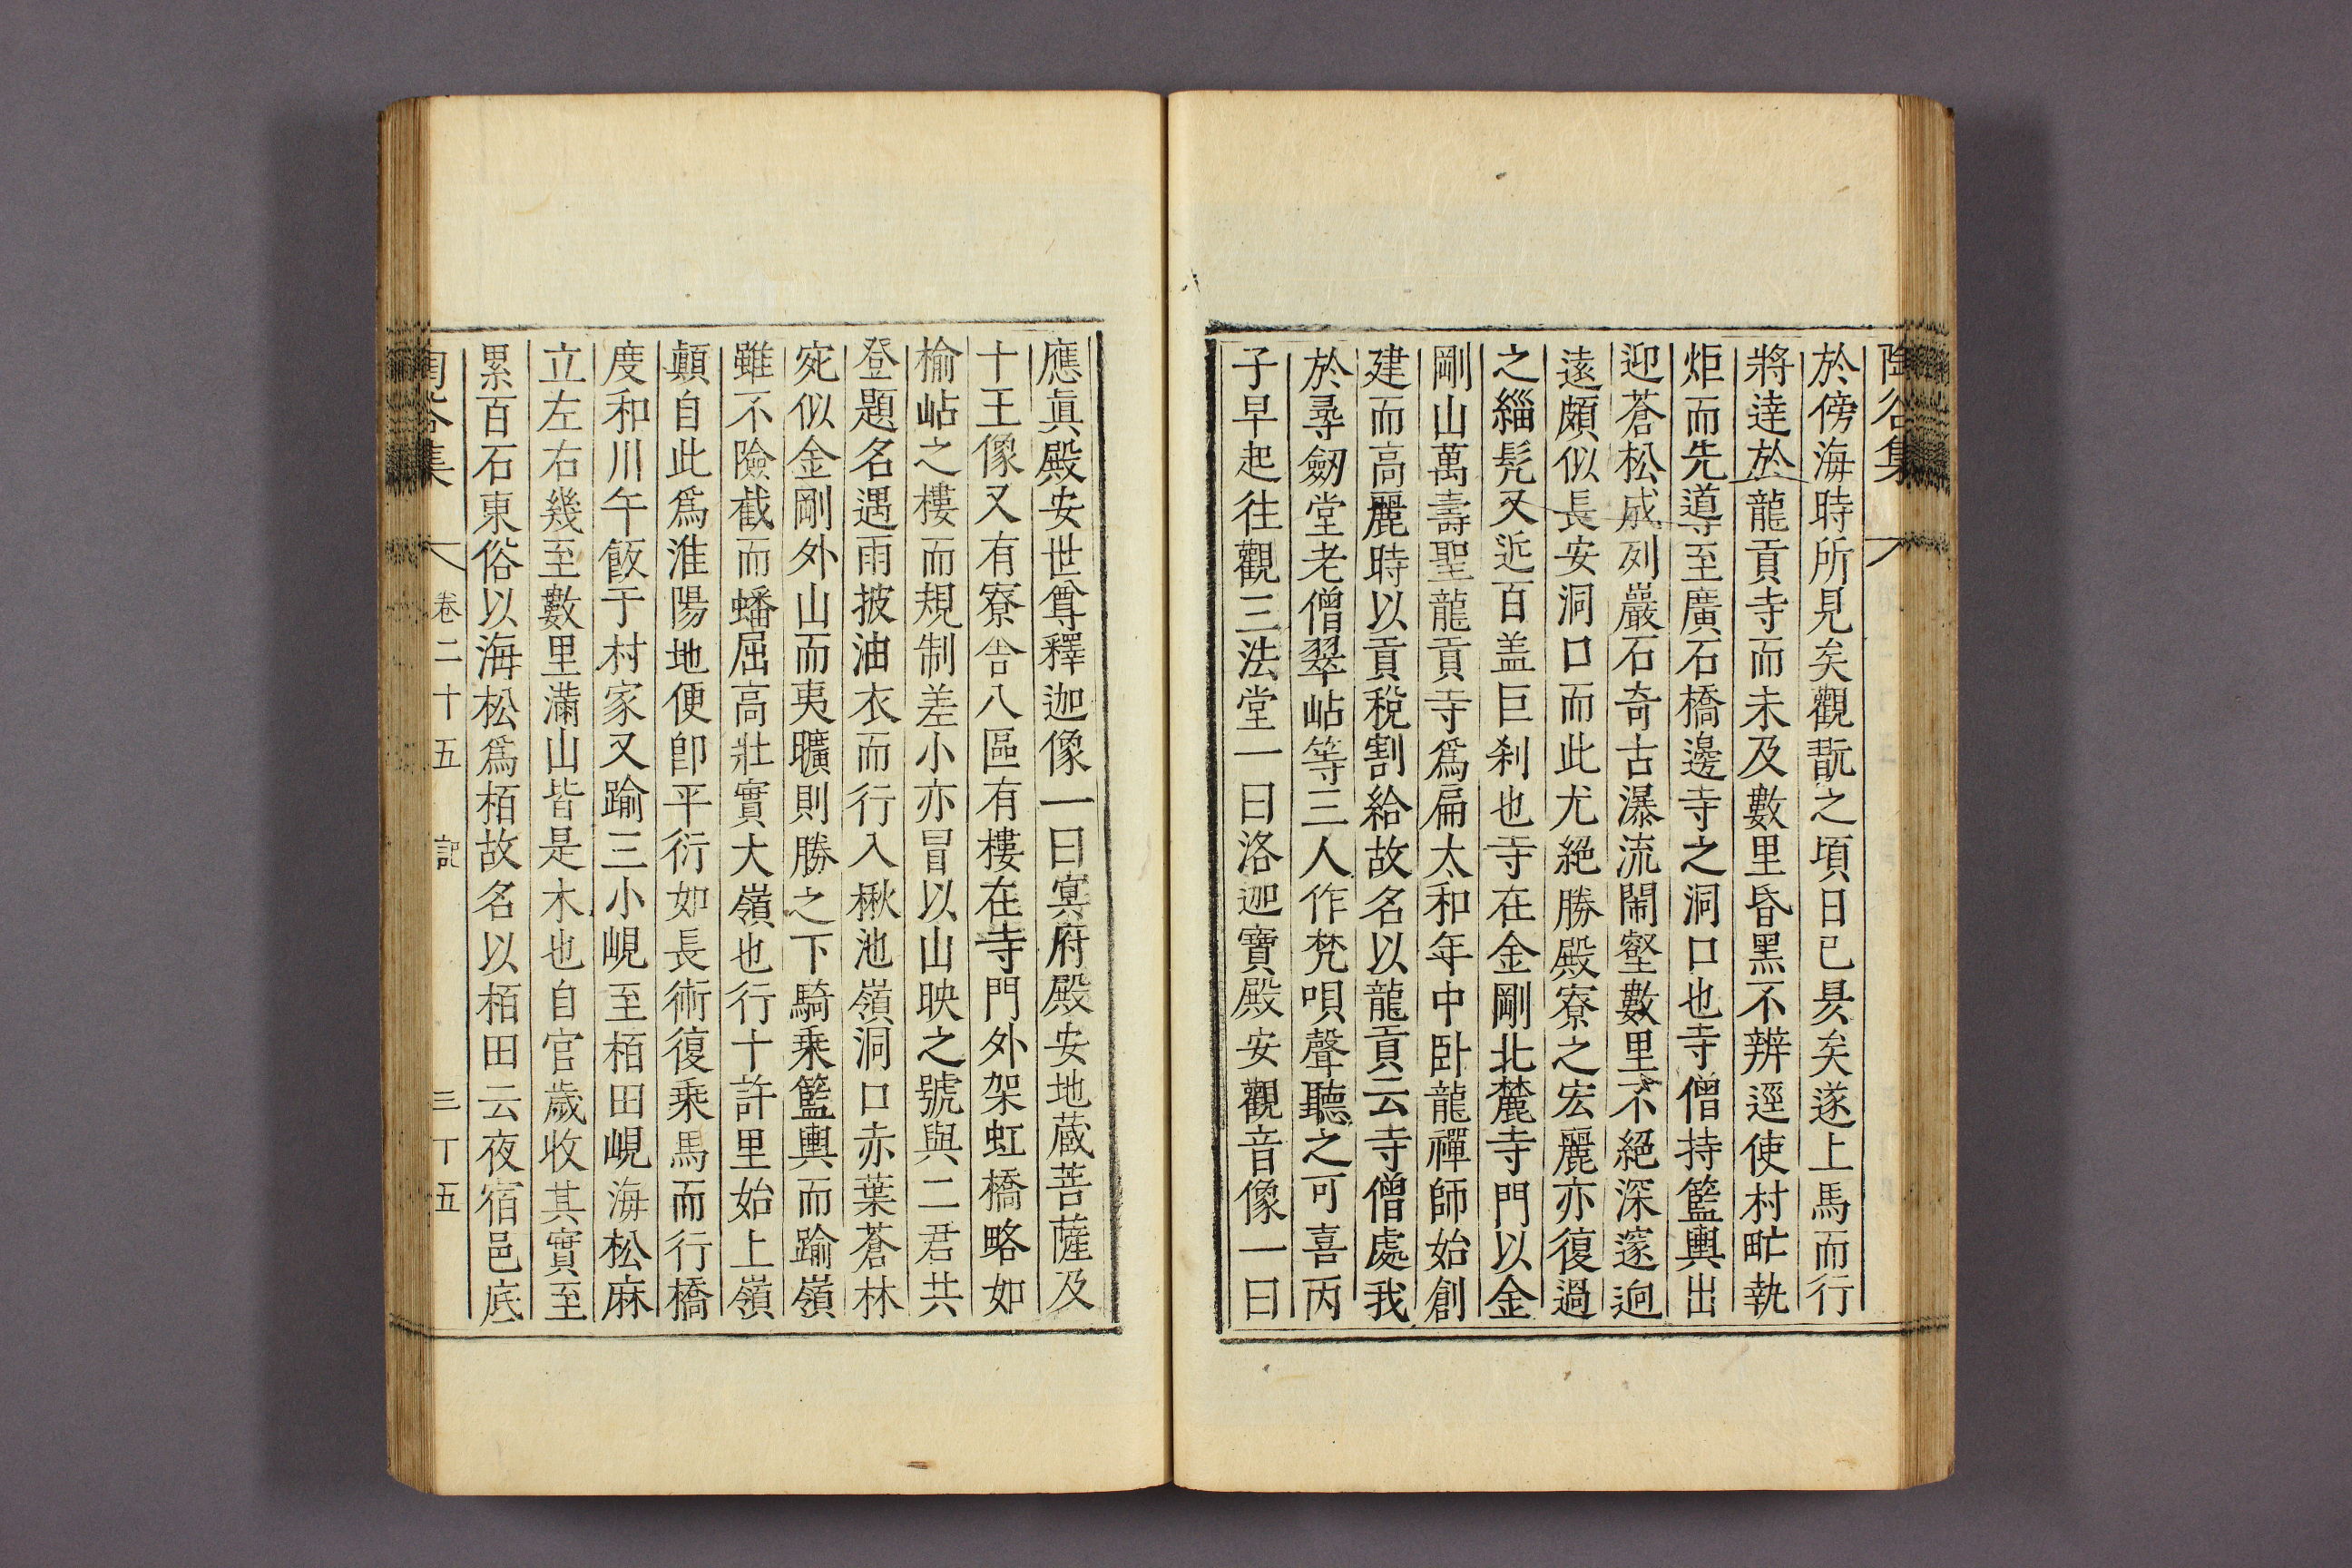 陶谷集
於傍海時所見矣觀翫之頃日已昃矣遂上馬而行
將達於龍貢寺而未及數里昏黑不辨逕使村甿執
炬而先導至廣石橋邊寺之洞口也寺僧持籃輿出
迎蒼松成列巖石奇古瀑流鬧壑數里不絕深邃逈
遠頗似長安洞口而此尤絕勝殿寮之宏麗亦復過
之緇髡又近百盖巨刹也寺在金剛北麓寺門以金
剛山萬壽聖龍貢寺爲扁太和年中臥龍禪師始創
建而高麗時以貢稅割給故名以龍貢云寺僧處我
於尋劒堂老僧翠岾等三人作梵唄聲聽之可喜丙
子早起往觀三法堂一曰洛迦寶殿安觀音像一曰
應眞殿安世尊釋迦像一曰冥府殿安地蔵菩薩及
十王像又有寮舍八區有樓在寺門外架虹橋略如
楡岾之樓而規制差小亦冒以山映之號與二君共
登題名遇雨披油衣而行入楸池嶺洞口赤葉蒼林
宛似金剛外山而夷曠則勝之下騎乘籃輿而踰嶺
雖不險截而蟠屈高壯實大嶺也行十許里始上嶺
顚自此爲淮陽地便卽平衍如長術復乘馬而行橋
度和川午飯于村家又踰三小峴至栢田峴海松麻
立左右幾至數里滿山皆是木也自官歲收其實至
累百石東俗以海松爲栢故名以栢田云夜宿邑底
陶谷集 卷二十五 記 三丁五